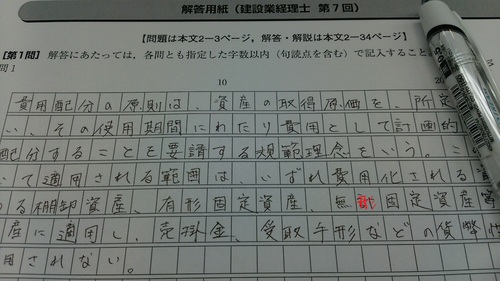 解答用紙（建設業経理士 第7回）
【問題は本文2−3ページ，解答・解説は本文2−34ページ】
［第1問］ 解答にあたっては，各問とも指定した字数以内（句読点を含む）で記入すること
問1
10
20
費用配分の原則は、資産の取得原価を、所定
い、その使用期間にわたり費用として計画的
配分することを要請する規範理念をいう。こ
いて適用される範囲は、いずれ費用化される
る棚卸資産、有形固定資産、無形固定資産等
産に適用し、売掛金、受取手形などの貨幣性
用されない。